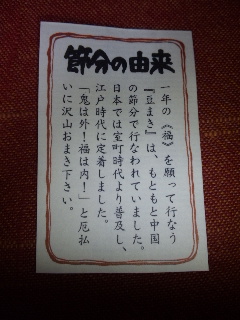 節分の由来
一年の《福》を願って行なう
『豆まき』は、もともと中国
の節分で行なわれていました。
日本では室町時代より普及し、
江戸時代に定着しました。
「鬼は外!福は内!」と厄払
いに沢山おまき下さい。